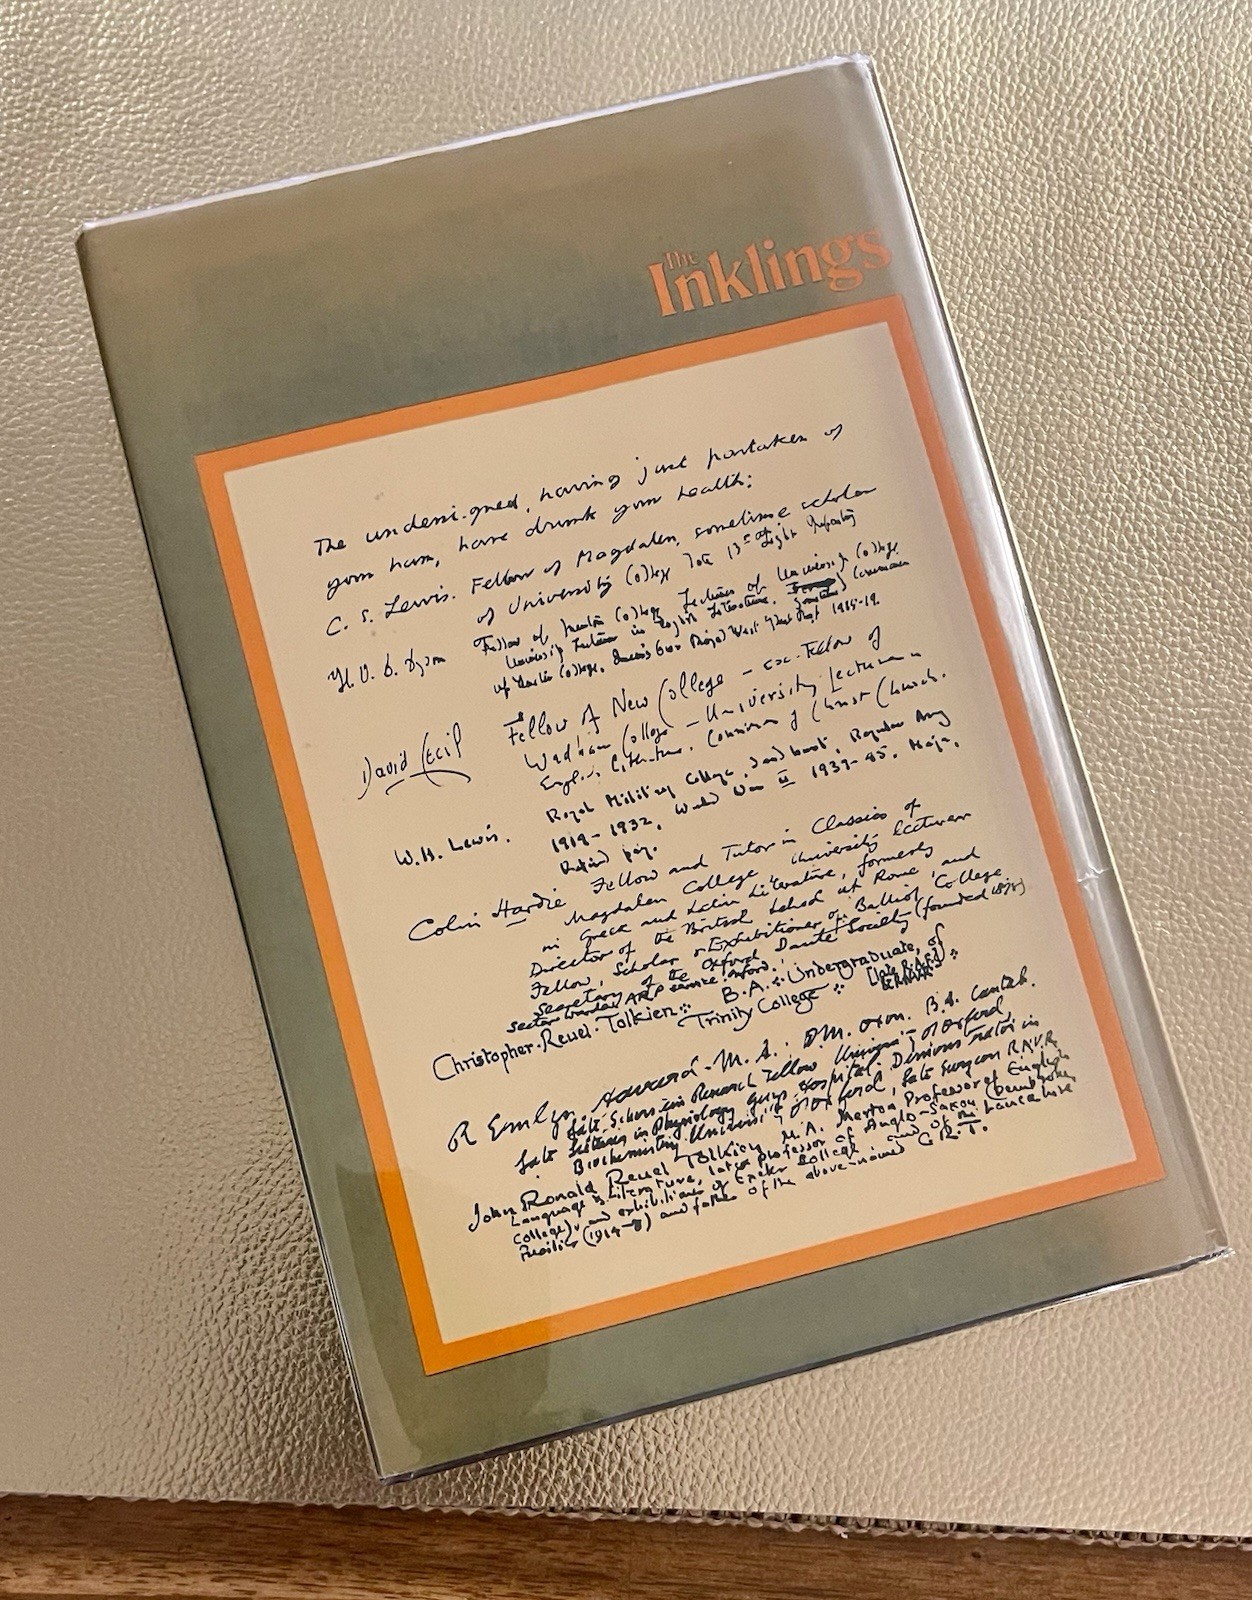 The
Inklings
The undersigned, having just partaken of
your ham, have drunk your health:
C. S. Lewis. Fellow of Magdalen, sometime scholar
of University College late 13th Light Infantry
H. V. D. Dyson Fellow of Merton College Lecturer of University College
University Lecturer in English Literature.
of Merton College, Queen's Own Royal West Kent Regt 1915-19.
David Cecil Fellow of New College - ex-Fellow of
Wadham College - University Lecturer in
English Literature. Commoner of Christ Church.
W. H. Lewis. Royal Military College, Sandhurst, Regular Army
1914-1932, World War II 1939-45. Major,
Retired pay.
Colin Hardie Fellow and Tutor in Classics of
Magdalen College University Lecturer
in Greek and Latin Literature, formerly
Director of the British School at Rome, and
Fellow, Scholar & Exhibitioner of Balliol College
Secretary of the Oxford Dante Society (founded
sector warden ARP service Oxford.
Christopher Reuel Tolkien B.A. Undergraduate, of
Trinity College (late R.A.F.
R Emlyn Howard- M.A. D.M. Oxon. B.A. Cantab.
late Research Fellow University of Oxford
late Lecturer in Physiology Guy's Hospital. Demonstrator in
Biochemistry University of Oxford, late Surgeon R.N.V.R.
John Ronald Reuel Tolkien M.A. Merton Professor of English
Language & Literature, late Professor of Anglo-Saxon (Pembroke
College), and exhibitioner of Exeter College and of the Lancashire
Fusiliers (1914-8) and father of the above-named C.R.T.